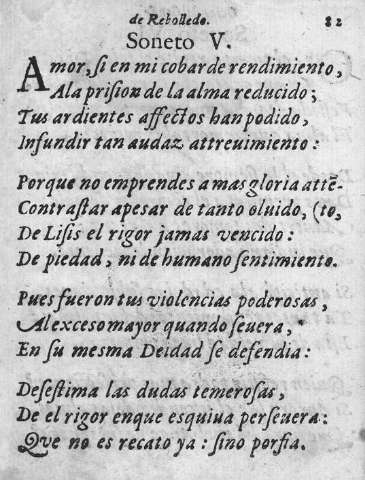 de Rebolledo. 82
Soneto V.
Amor, ſi en mi cobarde rendimiento,
A la priſion de la alma reducido;
Tus ardientes affectos han podido,
Infundir tan audaz attreuimiento:
Porque no emprendes a mas gloria attē-
Contraſtar apesar de tanto oluido, (to,
De Liſis el rigor jamas vencido:
De piedad, ni de humano ſentimiento.
Pues fueron tus violencias poderosas,
Al exceso mayor quando ſeuera,
En ſu mesma Deidad ſe defendia:
Deſeſtima las dudas temeroſas,
De el rigor enque esquiua perſeuera:
Que no es recato ya: ſino porfia.